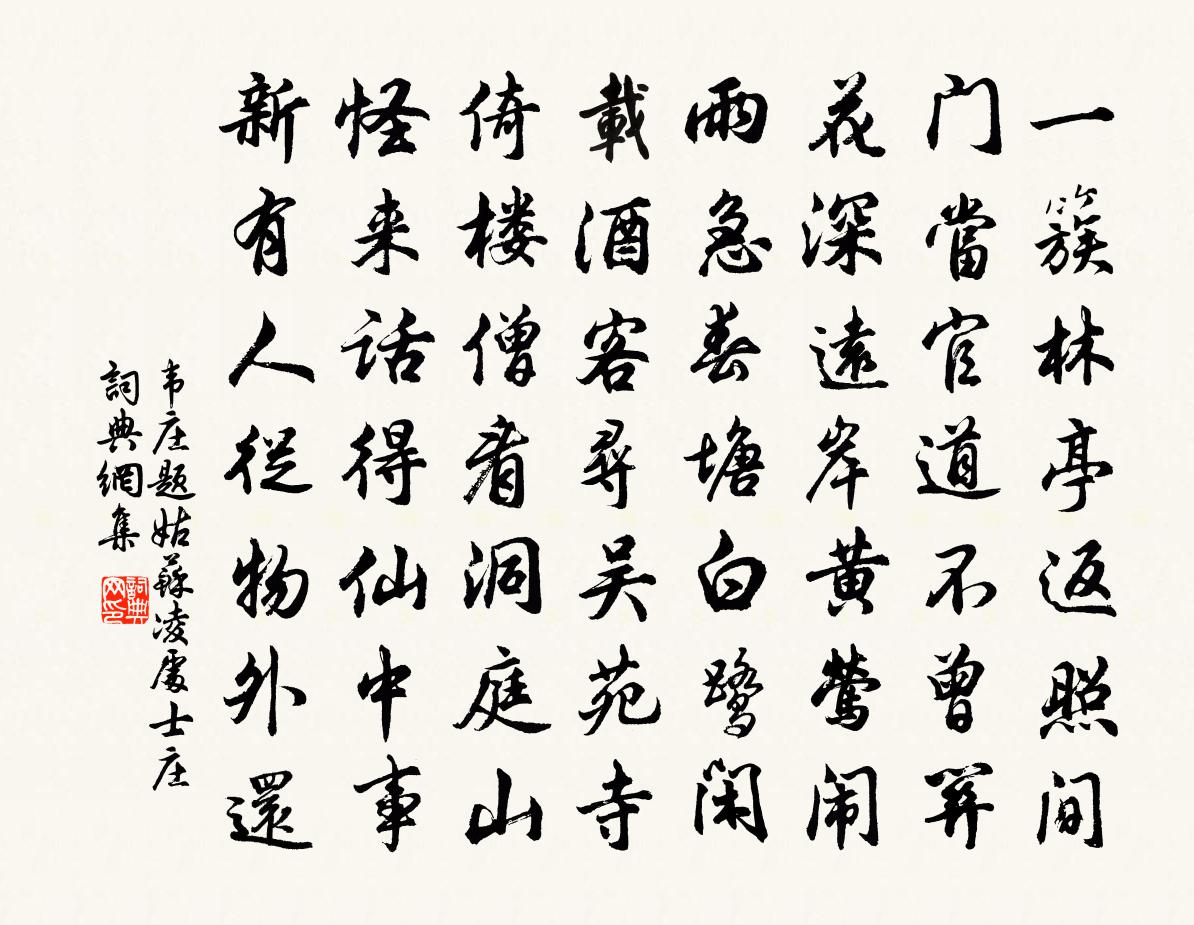 一簇林亭返照间
门當官道不曾關
花深遠岸黄莺闹
雨急春塘白鹭闲
載酒客尋吴苑寺
倚楼僧看洞庭山
怪来话得仙中事
新有人從物外還
韦庄题姑蘇凌處士庄
詞典網集